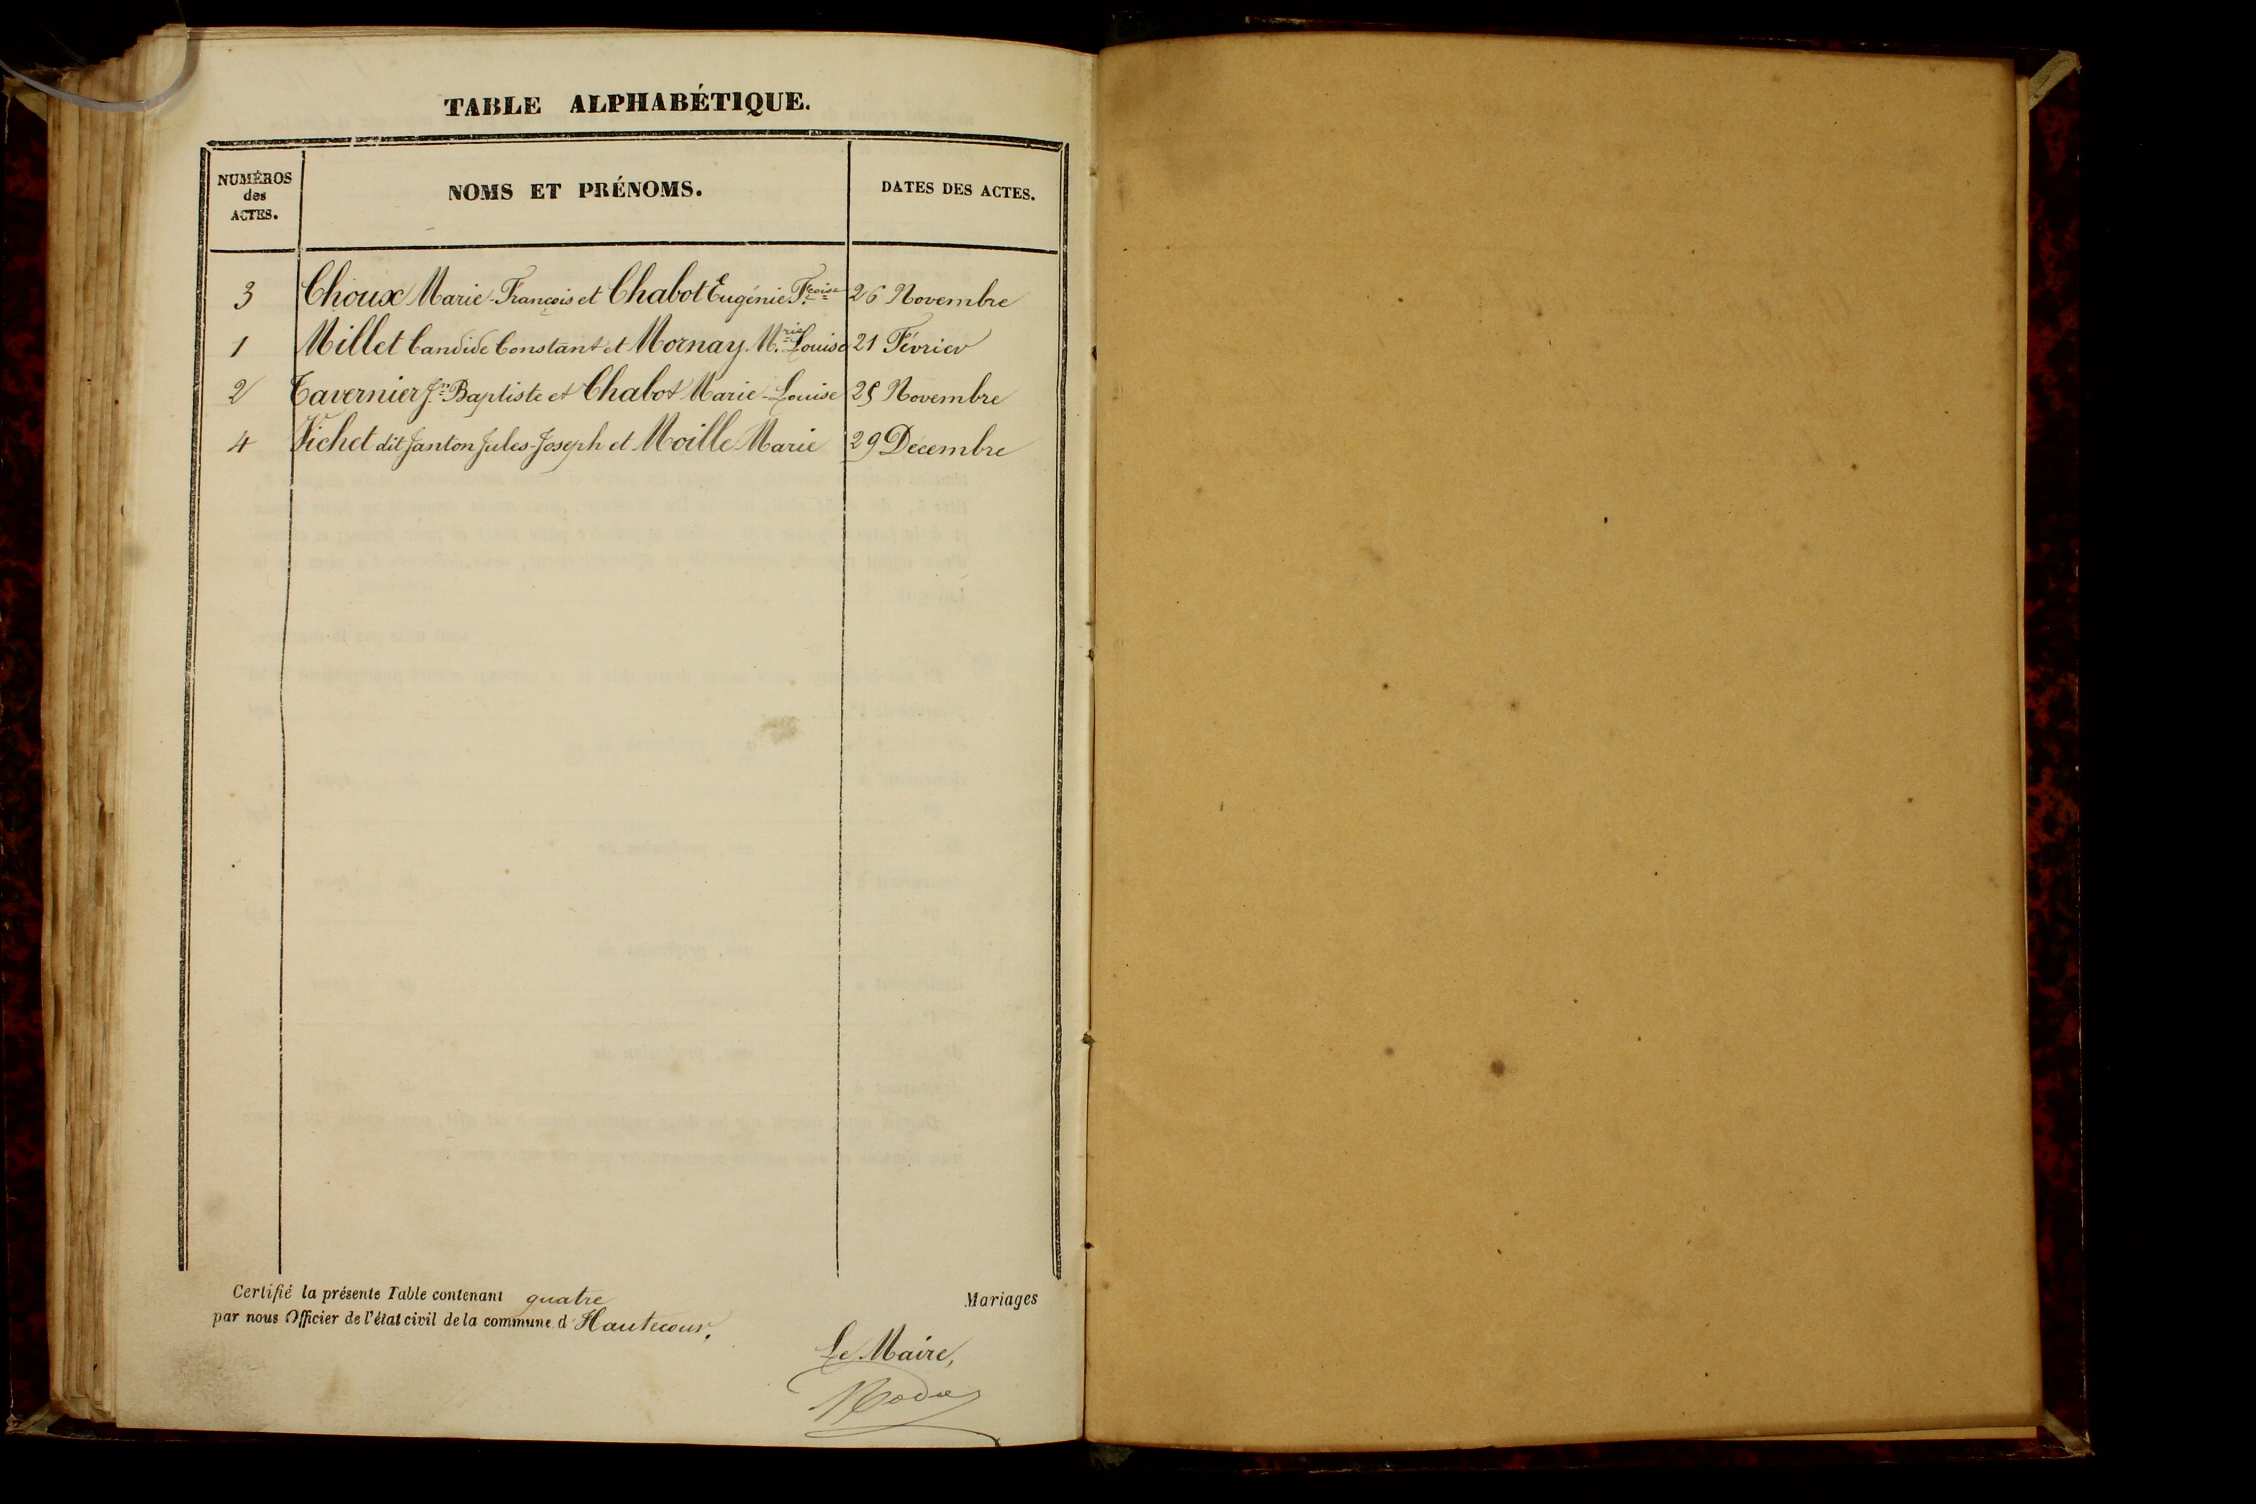 TABLE ALPHABÉTIQUE.
NUMÉROS
des
ACTES.
NOMS ET PRÉNOMS.
DATES DES ACTES.
3 Choux Marie-François et Chabot Eugénie Fçoise 26 Novembre
1 Millet Candide Constant et Mornay M.rie Louise 21 Février
2 Tavernier Jn Baptiste et Chabot Marie-Louise 25 Novembre
4 Vichet dit Janton Jules-Joseph et Moille Marie 29 Décembre
Certifié la présente Table contenant quatre Mariages
par nous Officier de l'état civil de la commune d'Hautecour.
Le Maire,